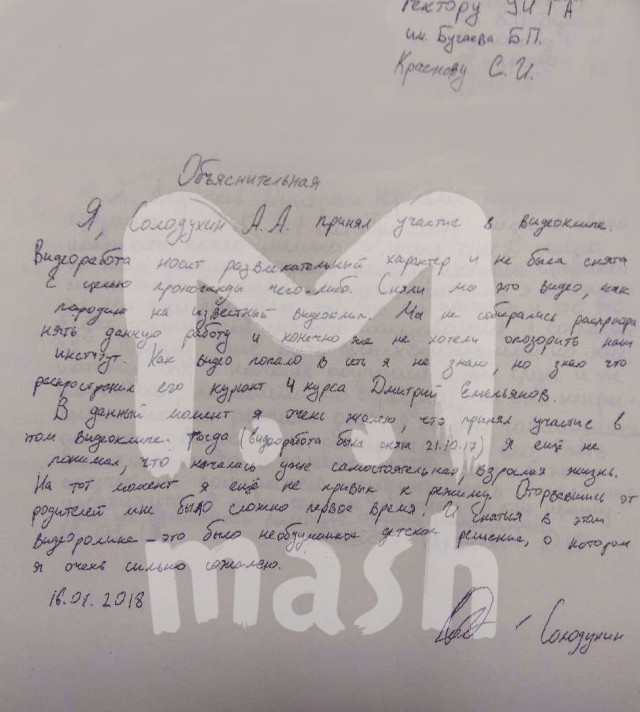 Ректору УИ ГА
им. Бугаева Б.П.
Краснову С.И.
Объяснительная
Я, Солодухин А.А. принял участие в видеоклипе.
Видеоработа носит развлекательный характер и не была снята
с целью пропоганды чего-либо. Сняли мы это видео, как
пародию на известный видеоклип. Мы не собирались распростра
нять данную работу и конечно же не хотели опозорить наш
институт. Как видео попало в сеть я не знаю, но знаю что
распространил его курсант 4 курса Дмитрий Емельянов.
В данный момент я очень жалею, что принял участие в
этом видеоклипе. Тогда (видеоработа была снята 21.10.17) Я ещё не
понимал, что началась уже самостоятельная, взрослая жизнь.
На тот момент я ещё не привык к режиму. Оторвавшись от
родителей мне было сложно первое время. И сняться в этом
видеоролике - это было необдуманное детское решение, о котором
я очень сильно сожалею.
16.01.2018
Солодухин
mash